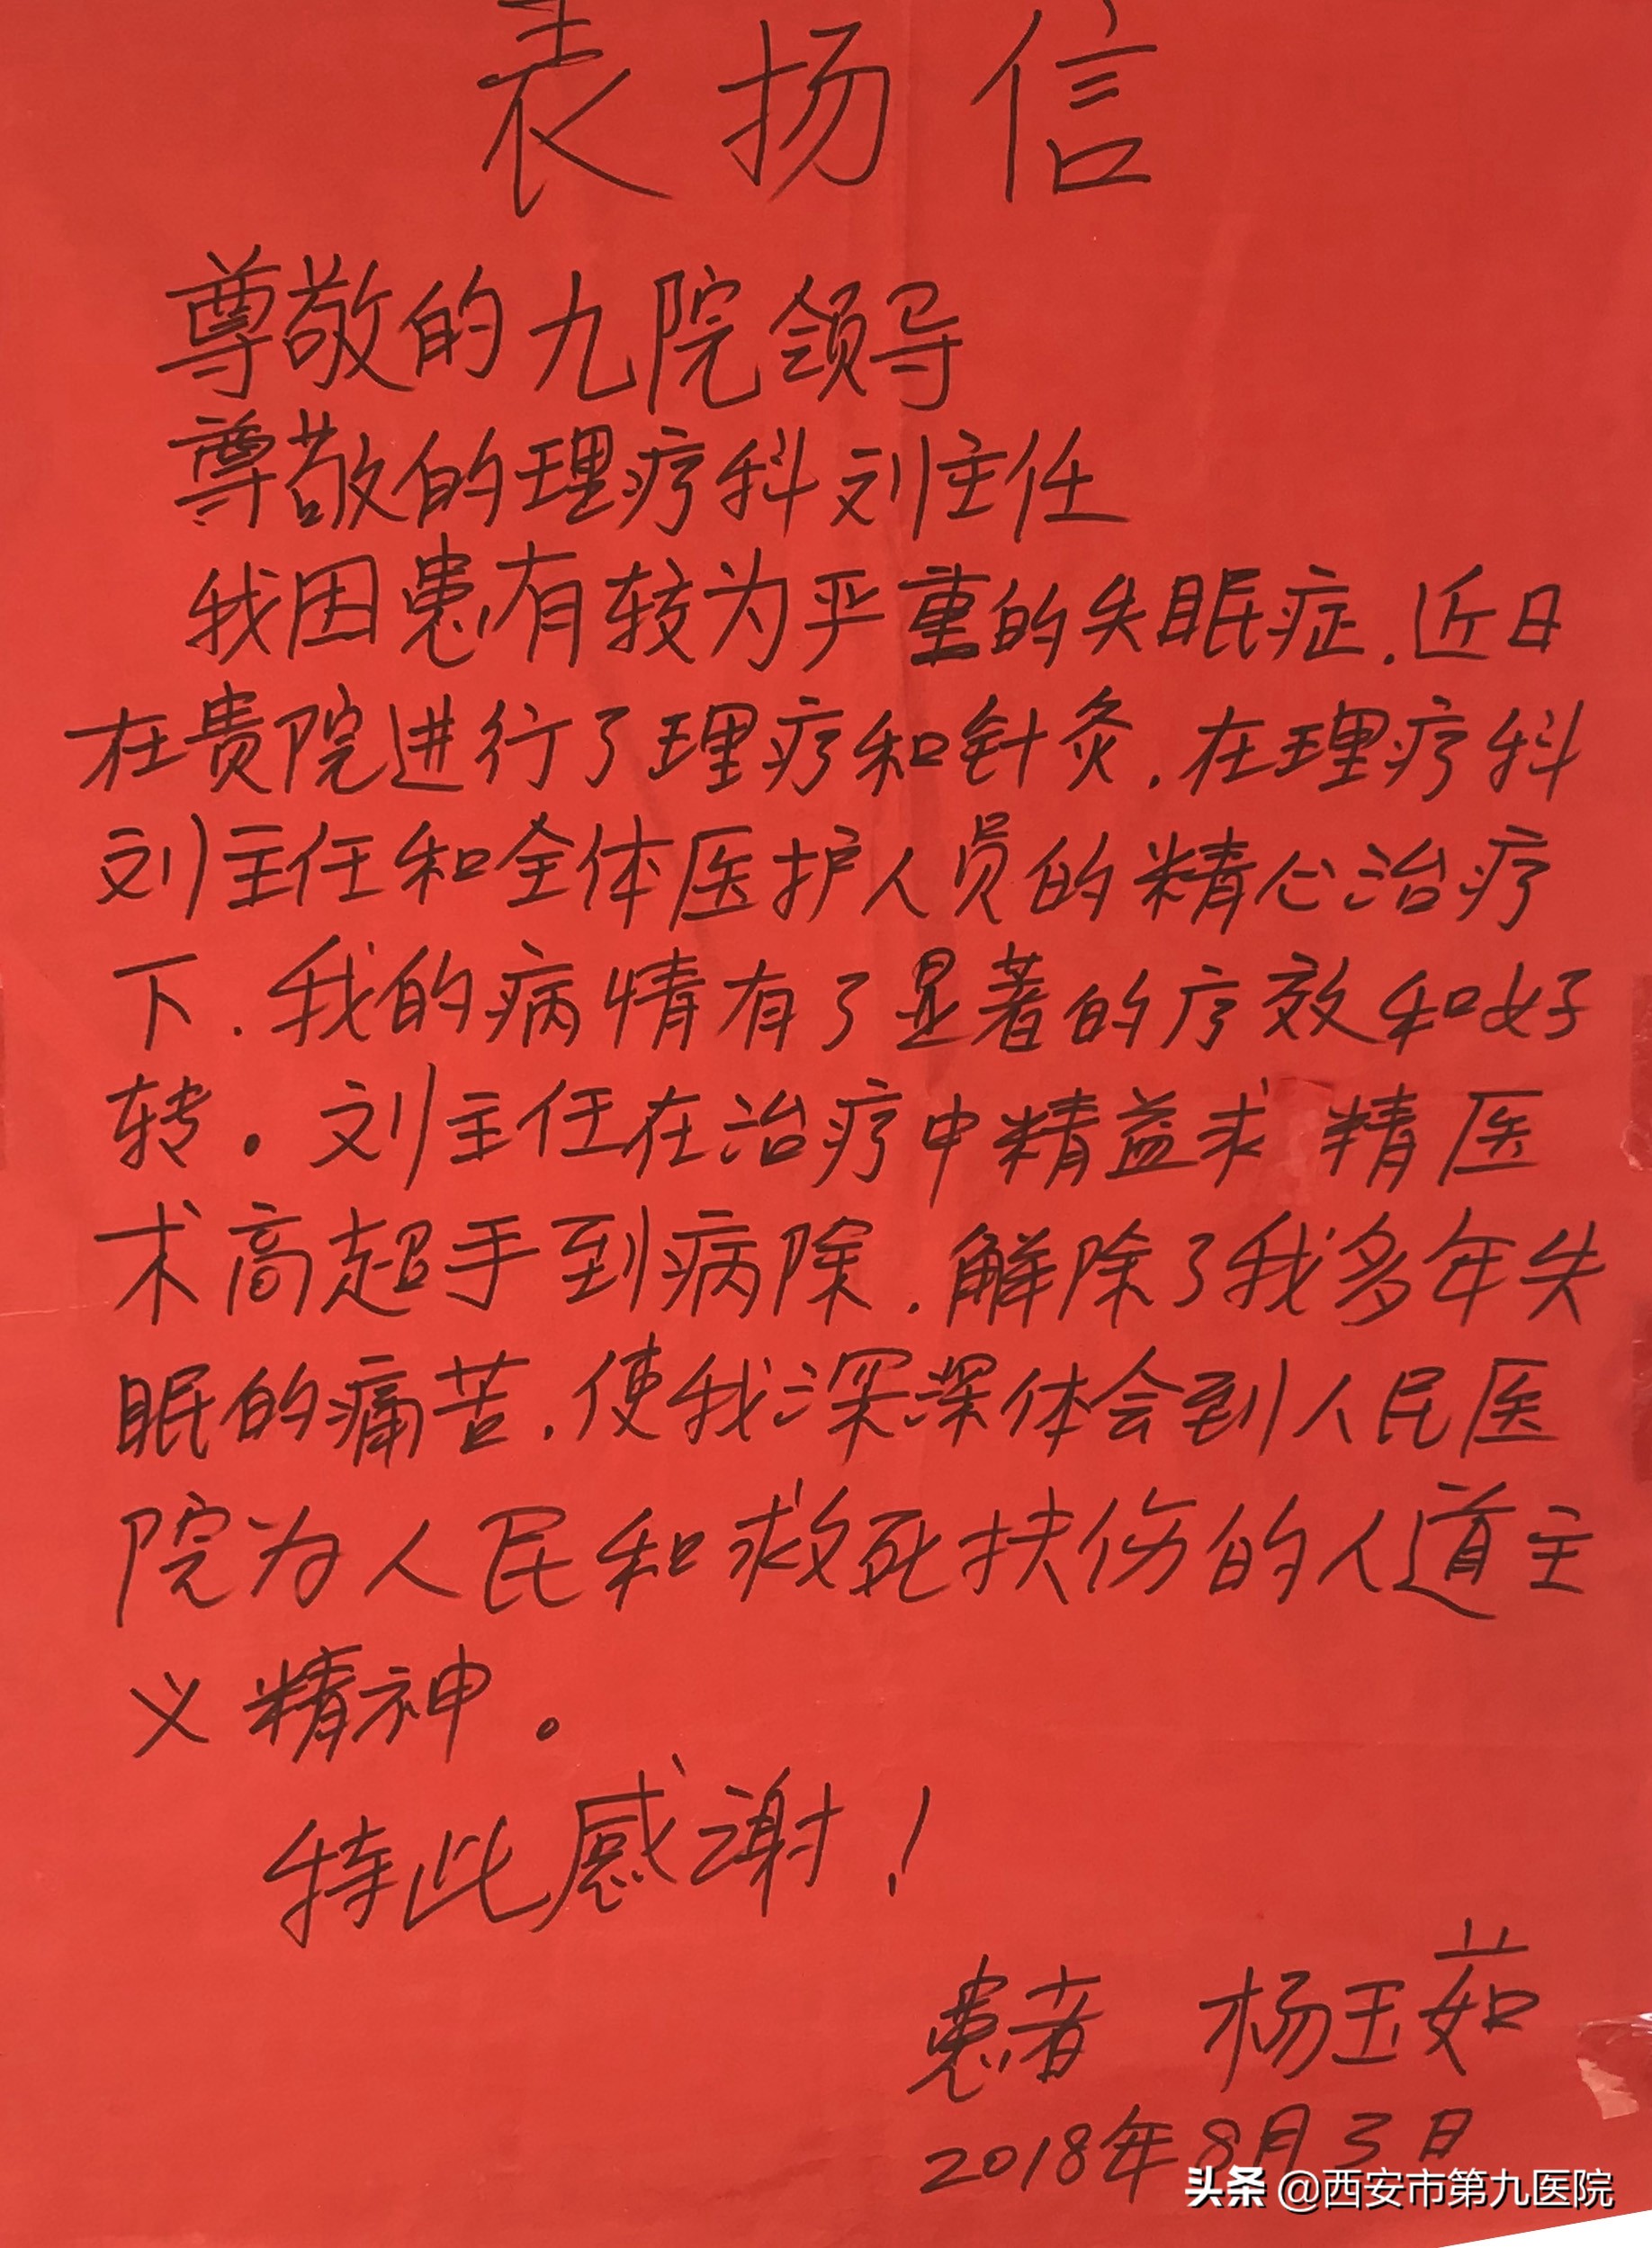 表扬信
尊敬的九院领导
尊敬的理疗科刘主任
我因患有较为严重的失眠症.近日
在贵院进行了理疗和针灸.在理疗科
刘主任和全体医护人员的精心治疗
下.我的病情有了显著的疗效和好
转。刘主任在治疗中精益求精医
术高超手到病除.解除了我多年失
眠的痛苦.使我深深体会到人民医
院为人民和救死扶伤的人道主
义精神。
特此感谢!
患者 杨玉茹
2018年8月3日
头条 @西安市第九医院